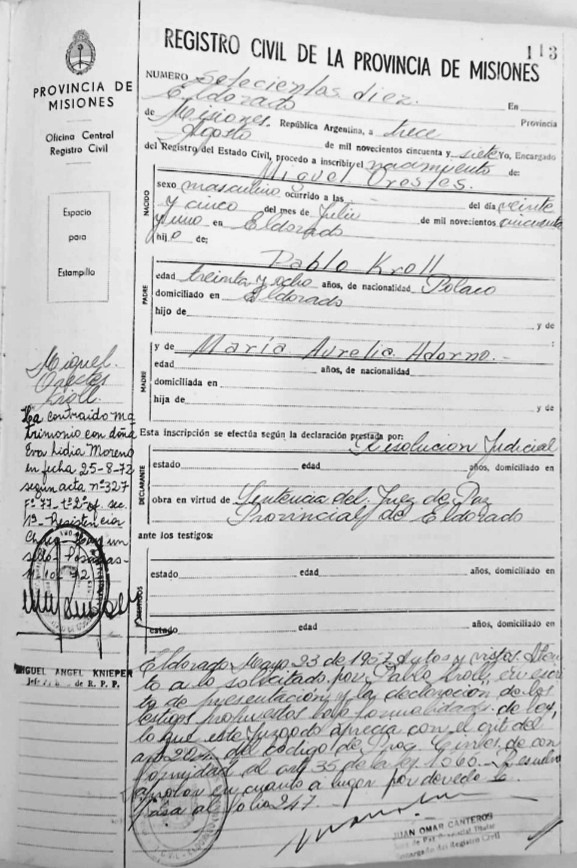 113
REGISTRO CIVIL DE LA PROVINCIA DE MISIONES
PROVINCIA DE
MISIONES
Oficina Central
Registro Civil
Espacio
para
Estampilla
NUMERO setecientos diez. En
Eldorado Provincia
de Misiones. República Argentina, a trece
Agosto de mil novecientos cincuenta y siete Yo, Encargado
del Registro del Estado Civil, procedo a inscribir el nacimiento de:
Miguel Orestes.
NACIDO
sexo masculino ocurrido a las del día veinte
y cinco del mes de Julio de mil novecientos cincuenta
y uno en Eldorado
hijo de:
PADRE
Pablo Kroll
edad treinta y ocho años, de nacionalidad Polaco
domiciliado en Eldorado
hijo de
y de
MADRE
y de María Aurelia Adorno.-
edad años, de nacionalidad
domiciliada en
hija de
y de
Miguel
Orestes
Kroll
Ha contraido ma
trimonio con doña
Eva Lidia Moreno
en fecha 25-8-72
según acta nº 327
Fº 77 tº 2º
Resistencia
DECLARANTE
Esta inscripción se efectúa según la declaración prestada por:
Resolucion Judicial
estado edad años, domiciliado en
obra en virtud de Sentencia del Juez de Paz
Provincial de Eldorado
ante los testigos:
TESTIGOS
estado edad años, domiciliado en
estado edad años, domiciliado en
MIGUEL ANGEL KNIEPER
de R. P. P.
Eldorado Mayo 23 de 1957 Autos y vistos: Aten
to a lo solicitado por Pablo Kroll, en escri
to de presentación y la declaración de los
testigos propuestos bajo formalidades de ley,
lo que este Juzgado aprecia con el crit del
art 204 del Código de Proc. Civiles de con
formidad al art 35 de la ley 1060.-
en cuanto a lugar por derecho
Pasa al folio 247.-
JUAN OMAR CANTEROS
Juez de Paz Provincial Titular
Encargado del Registro Civil